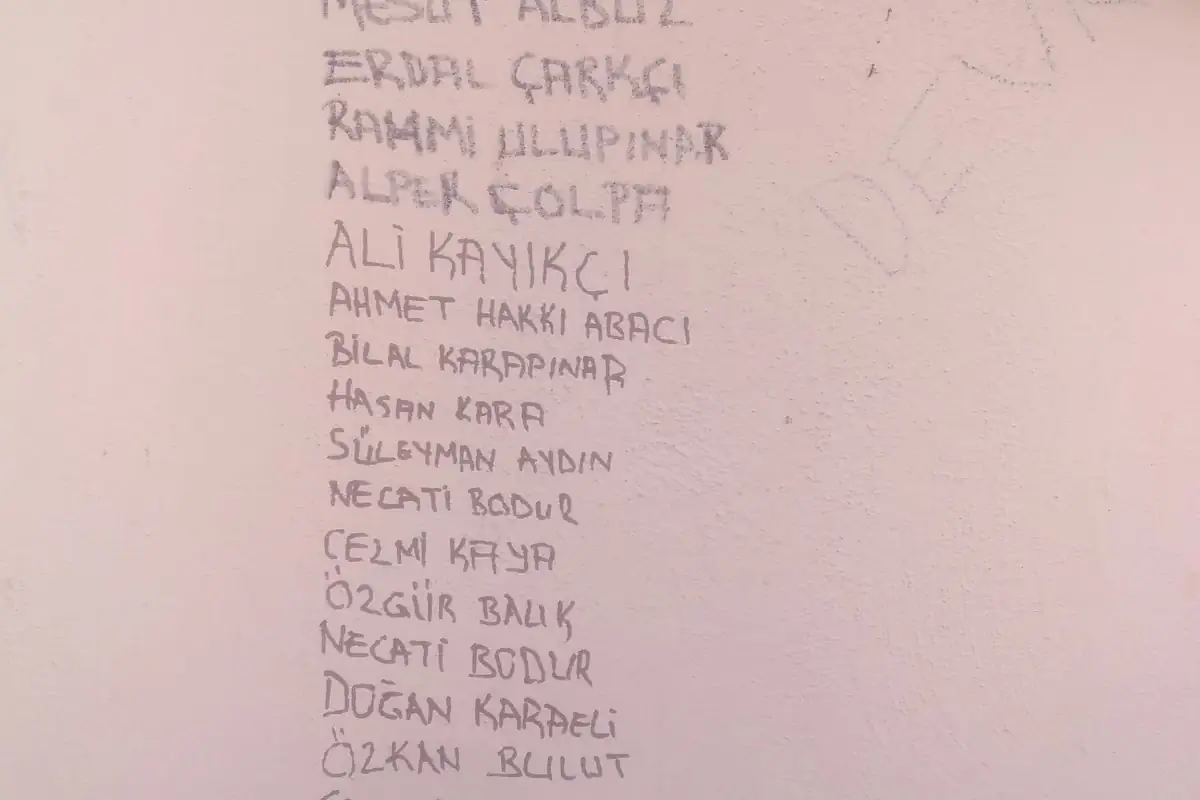 MESUT ALBUZ
ERDAL ÇARKÇI
RAHMİ ULUPINAR
ALPER ÇOLPA
ALİ KAYIKÇI
AHMET HAKKI ABACI
BİLAL KARAPINAR
HASAN KARA
SÜLEYMAN AYDIN
NECATİ BODUR
ÇELMİ KAYA
ÖZGÜR BALIK
NECATİ BODUR
DOĞAN KARAELİ
ÖZKAN BULUT